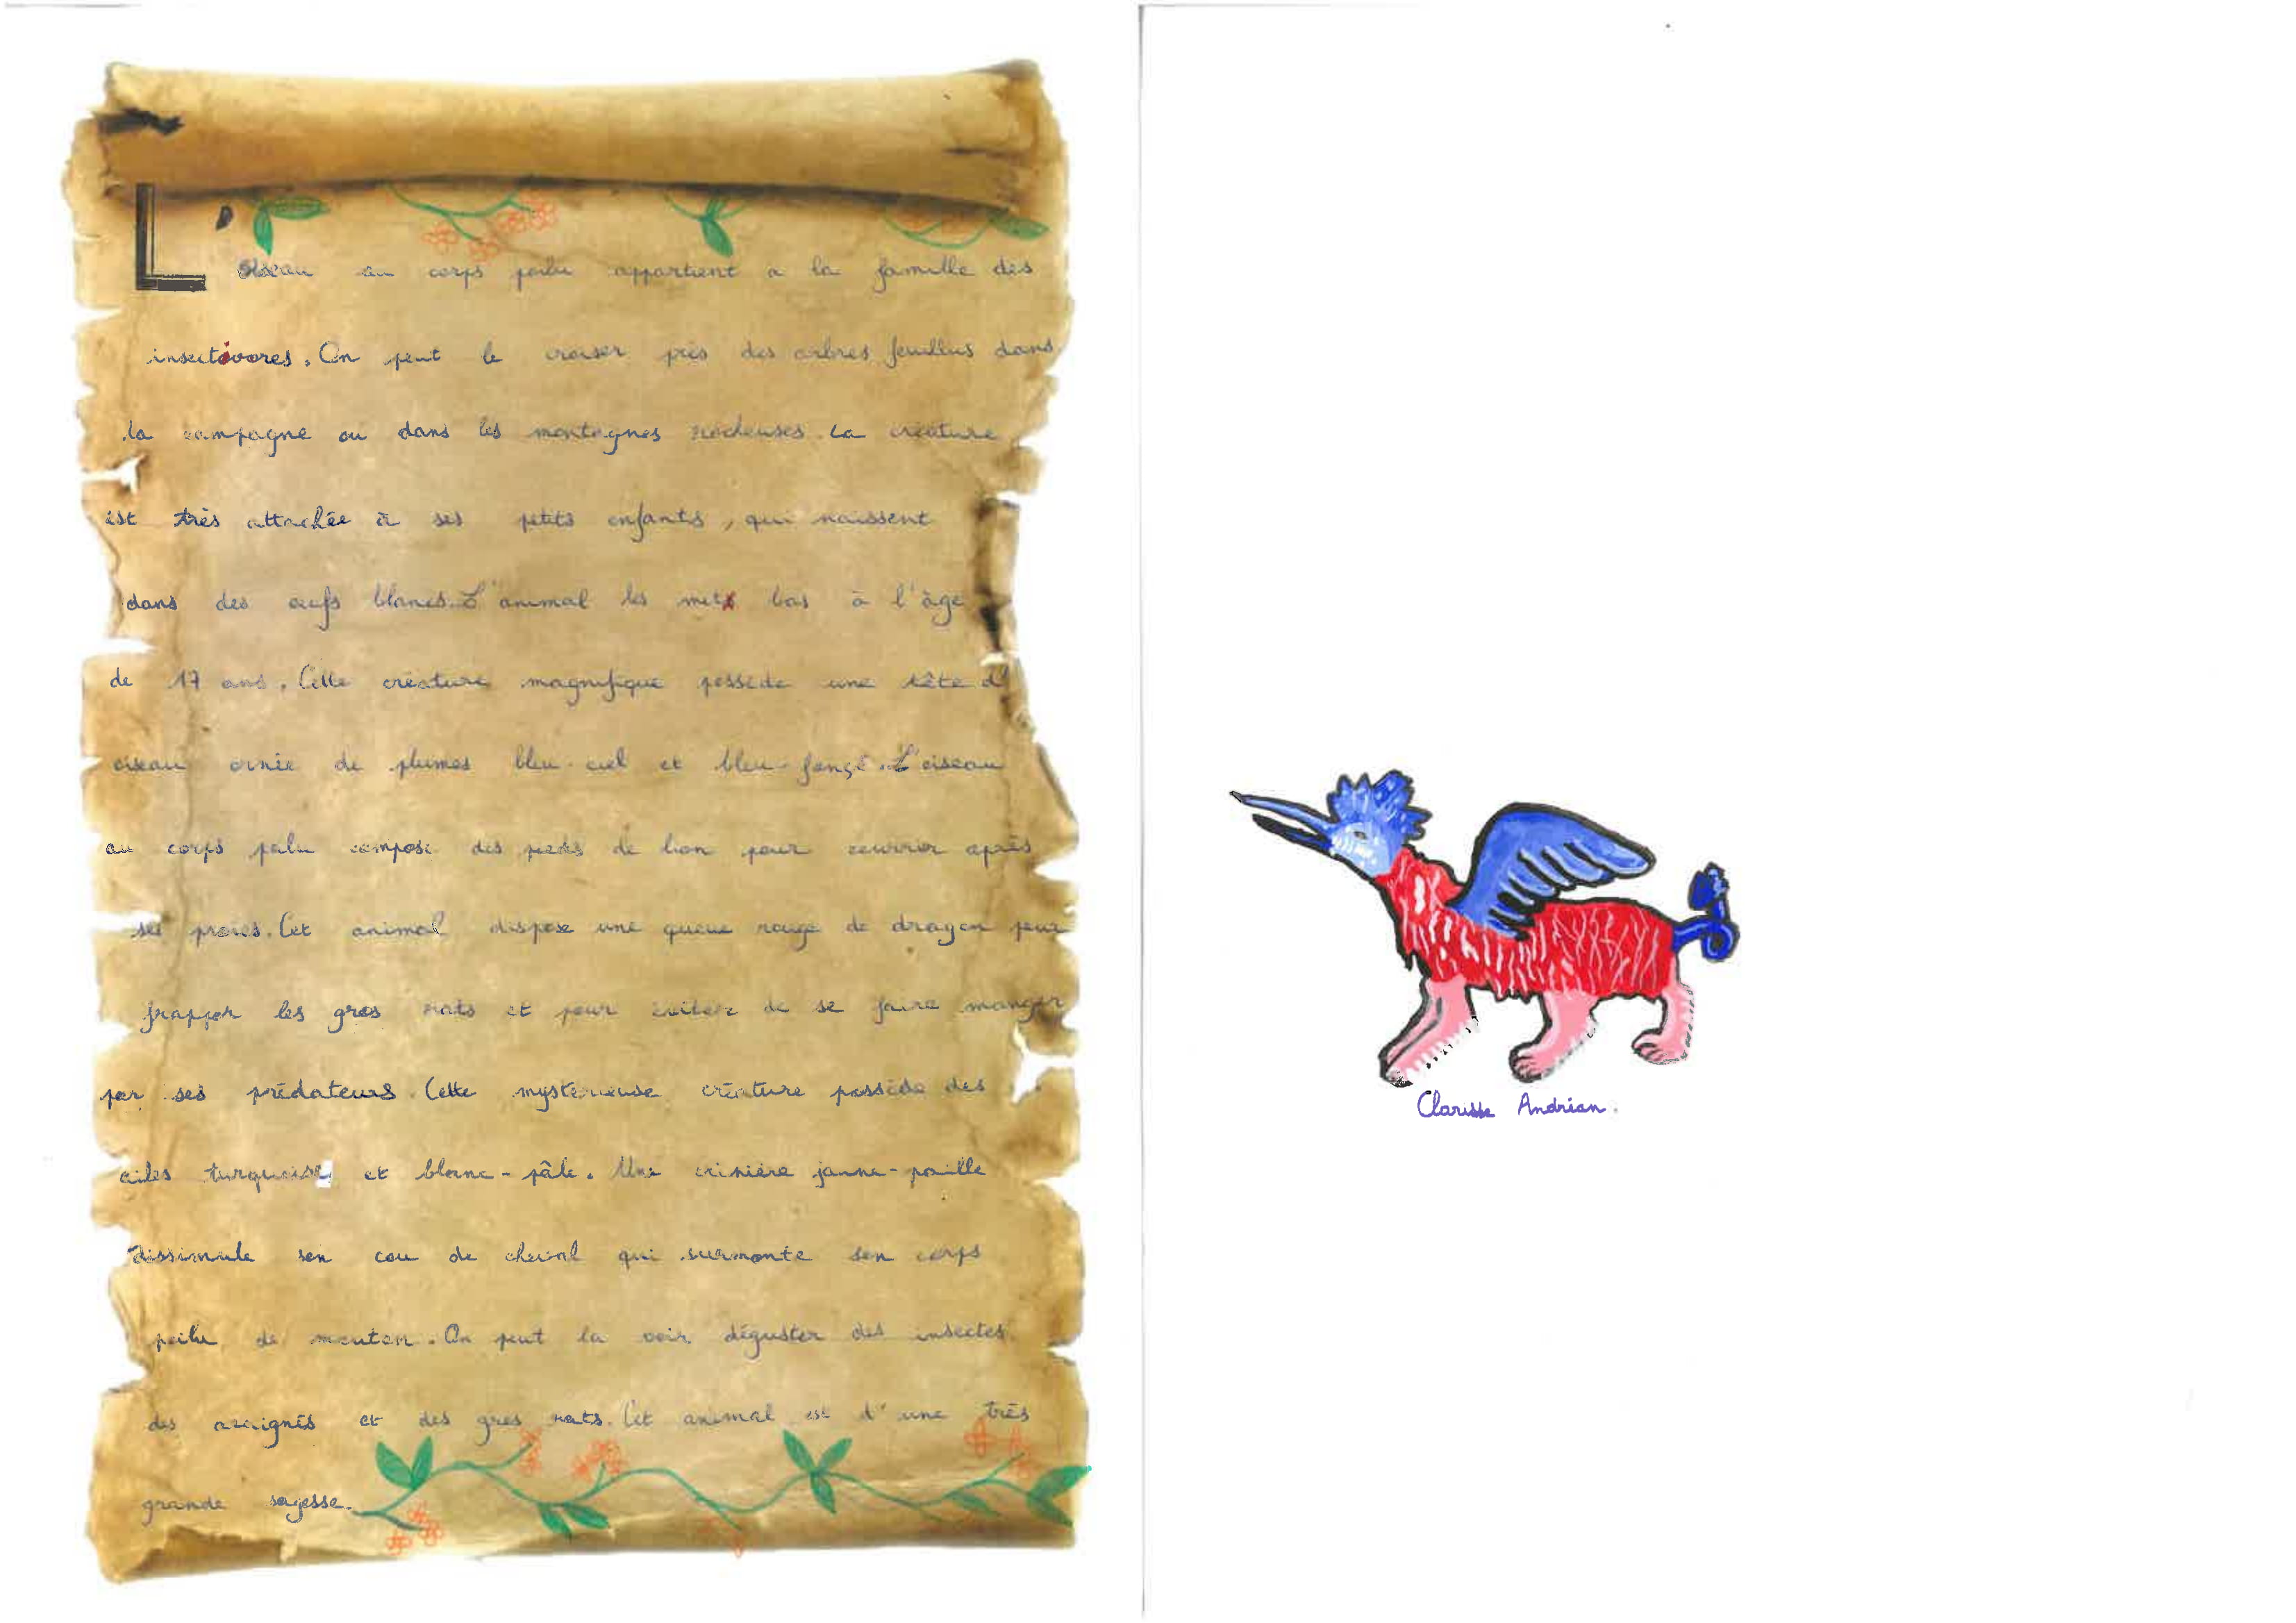 L'oiseau au corps poilu appartient a la famille des
insectivores. On peut le croiser près des arbres feuillus dans
la campagne ou dans les montagnes rocheuses. La créature
est très attachée à ses petits enfants, qui naissent
dans des œufs blancs. L'animal les met bas à l'âge
de 17 ans. Cette créature magnifique possède une tête d'
oiseau ornée de plumes bleu-ciel et bleu-fonçé. L'oiseau
au corps poilu compose des pieds de lion pour courrir après
ses proies. Cet animal dispose une queue rouge de dragon pour
frapper les gros rats et pour éviter de se faire manger
par ses prédateurs. Cette mystérieuse créature possède des
ailes turquoise et blanc-pâle. Une crinière jaune-paille
dissimule son cou de cheval qui surmonte son corps
poilu de mouton. On peut la voir déguster des insectes
des araignés et des gros rats. Cet animal est d'une très
grande sagesse.
Clarisse Andrian.